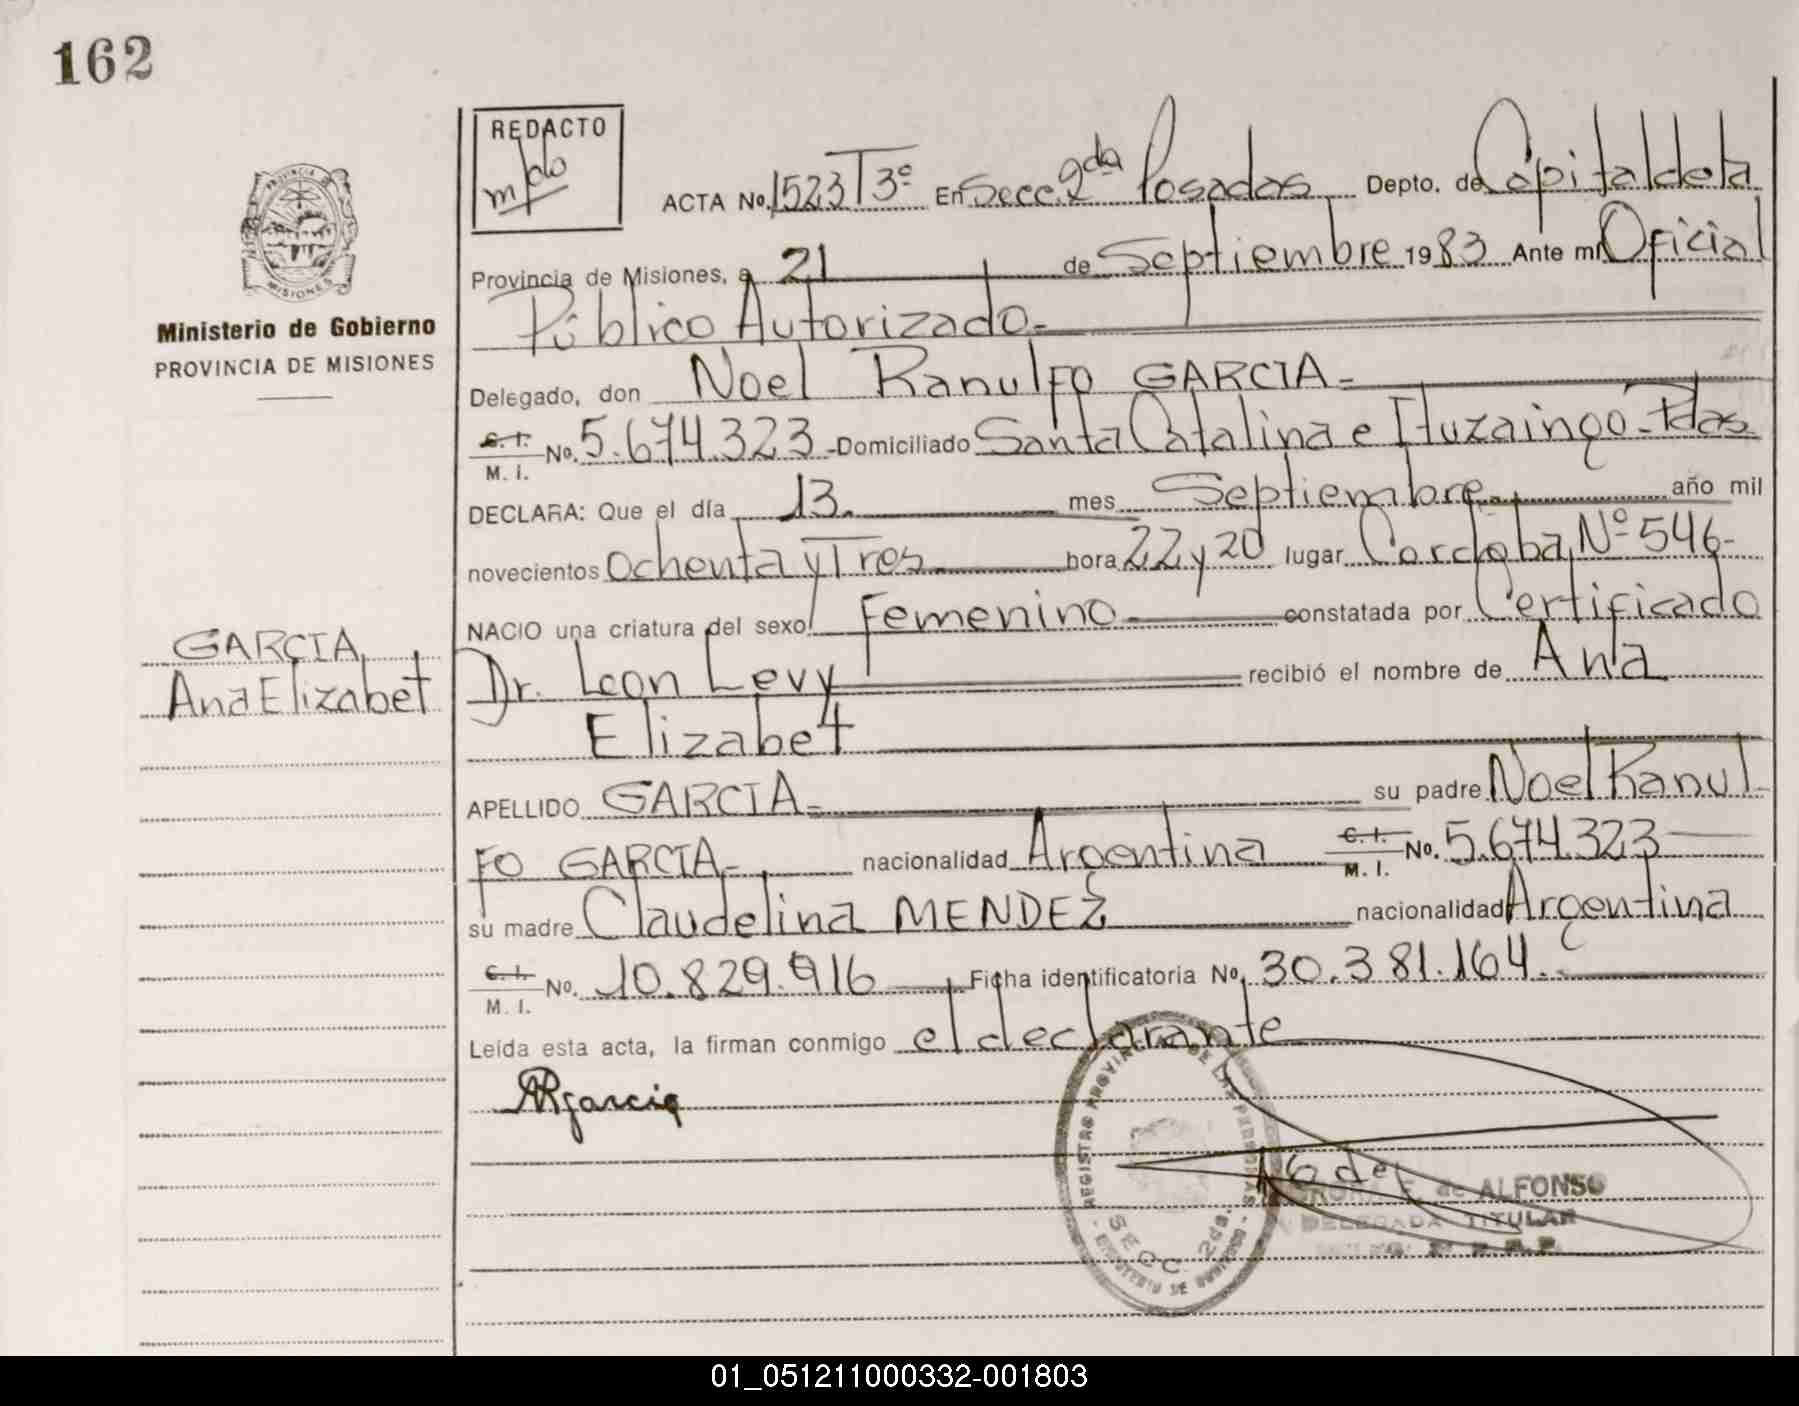 162
REDACTO
ACTA No. 1523 T3º En Secc. 2da Posadas Depto. de Capital de la
Provincia de Misiones, a 21 de Septiembre 1983 Ante mi Oficial
Público Autorizado.-
Ministerio de Gobierno
PROVINCIA DE MISIONES
Delegado, don Noel Ranulfo GARCIA.-
C. I.
M. I. No. 5.674.323 - Domiciliado Santa Catalina e Ituzaingo - Pdas
DECLARA: Que el día 13. mes Septiembre. año mil
novecientos ochenta y Tres hora 22 y 20 lugar Cordoba Nº 546-
NACIO una criatura del sexo Femenino constatada por Certificado
GARCIA
Ana Elizabet
Dr. Leon Levy recibió el nombre de Ana
Elizabet
APELLIDO GARCIA.- su padre Noel Ranul-
fo GARCIA.- nacionalidad Argentina C. I.
M. I. No. 5.674.323
su madre Claudelina MENDEZ nacionalidad Argentina
C. I.
M. I. No. 10.829.916 Ficha identificatoria No. 30.381.164.
Leída esta acta, la firman conmigo el declarante
NRgarcia
REGISTRO PROVINCIAL DE LAS PERSONAS
SECC. 2da.
MINISTERIO DE GOBIERNO
E. de ALFONSO
DELEGADA TITULAR
01_051211000332-001803